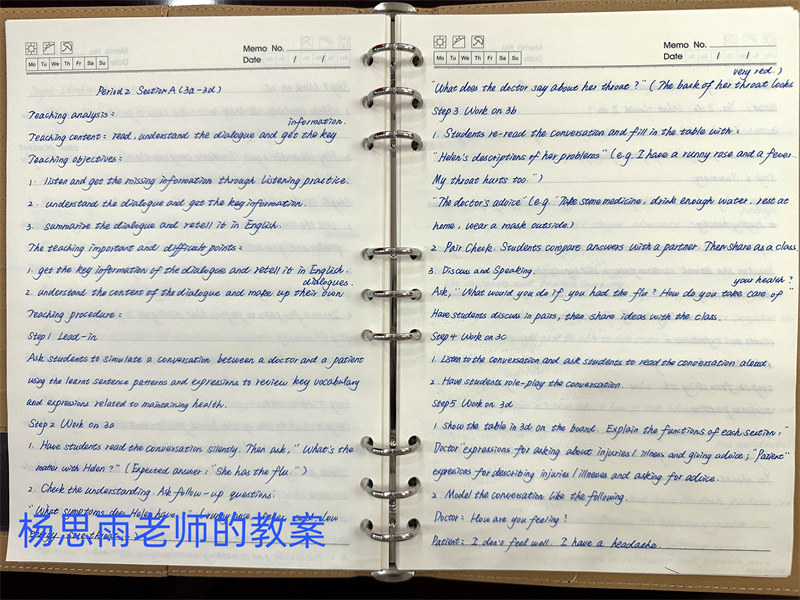 Memo No.
Mo Tu We Th Fr Sa Su
Date / /
Period 2 Section A (3a-3d)
Teaching analysis:
information.
Teaching content: read, understand the dialogue and get the key
Teaching objectives:
1. listen and get the missing information through listening practice.
2. understand the dialogue and get the key information.
3. summarize the dialogue and retell it in English.
The teaching important and difficult points:
1. get the key information of the dialogue and retell it in English.
dialogues.
2. understand the content of the dialogue and make up their own
Teaching procedure:
Step 1 Lead-in
Ask students to simulate a conversation between a doctor and a patient
using the learnt sentence patterns and expressions to review key vocabulary
and expressions related to maintaining health.
Step 2 Work on 3a
1. Have students read the conversation silently. Then ask, "What's the
matter with Helen?" (Expected answer: "She has the flu.")
2. Check the understanding. Ask follow-up questions:
"What symptoms does Helen have
杨思雨老师的教案
Memo No.
Mo Tu We Th Fr Sa Su
Date / /
very red.)
"What does the doctor say about her throat?" (The back of her throat looks
Step 3 Work on 3b
1. Students re-read the conversation and fill in the table with:
"Helen's descriptions of her problems" (e.g. I have a runny rose and a fever.
My throat hurts too.")
"The doctor's advice" (e.g. "Take some medicine, drink enough water, rest at
home, wear a mask outside)
2. Pair Check. Students compare answers with a partner. Then share as a class.
3. Discuss and Speaking.
your health?
Ask, "What would you do if you had the flu? How do you take care of "
Have students discuss in pairs, then share ideas with the class.
Step 4 Work on 3c
1. Listen to the conversation and ask students to read the conversation aloud.
2. Have students role-play the conversation.
Step 5 Work on 3d
1. Show the table in 3d on the board. Explain the functions of each section: "
Doctor" expressions for asking about injuries / illness and giving advice; "Patient"
expressions for describing injuries / illnesses and asking for advice.
2. Model the conversation like the following.
Doctor: How are you feeling?
Patient: I don't feel well. I have a headache.